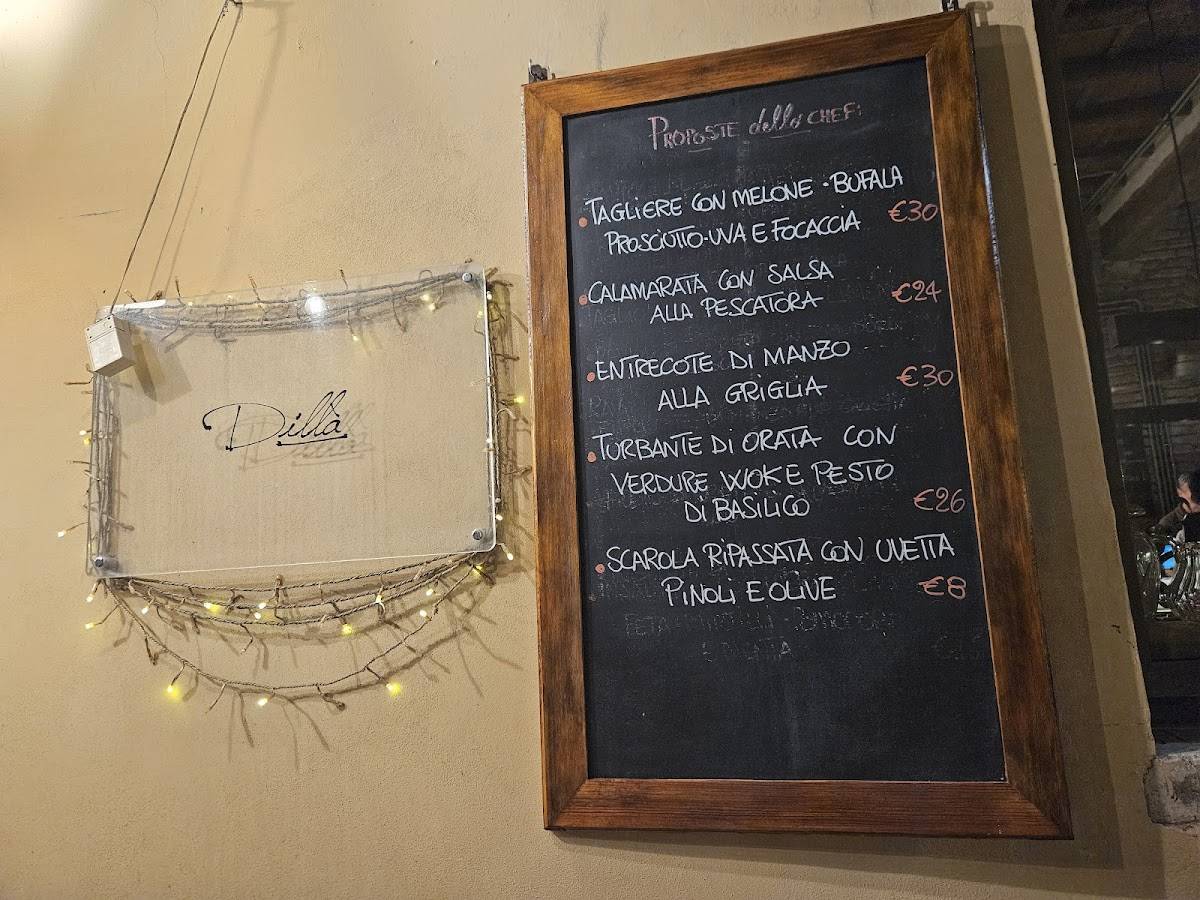 Dillà
PROPOSTE dello CHEF:
• TAGLIERE CON MELONE • BUFALA
PROSCIUTTO-UVA E FOCACCIA €30
• CALAMARATA CON SALSA
ALLA PESCATORA €24
• ENTRECOTE DI MANZO
ALLA GRIGLIA €30
• TURBANTE DI ORATA CON
VERDURE WOK E PESTO
DI BASILICO €26
• SCAROLA RIPASSATA CON UVETTA
PINOLI E OLIVE €8